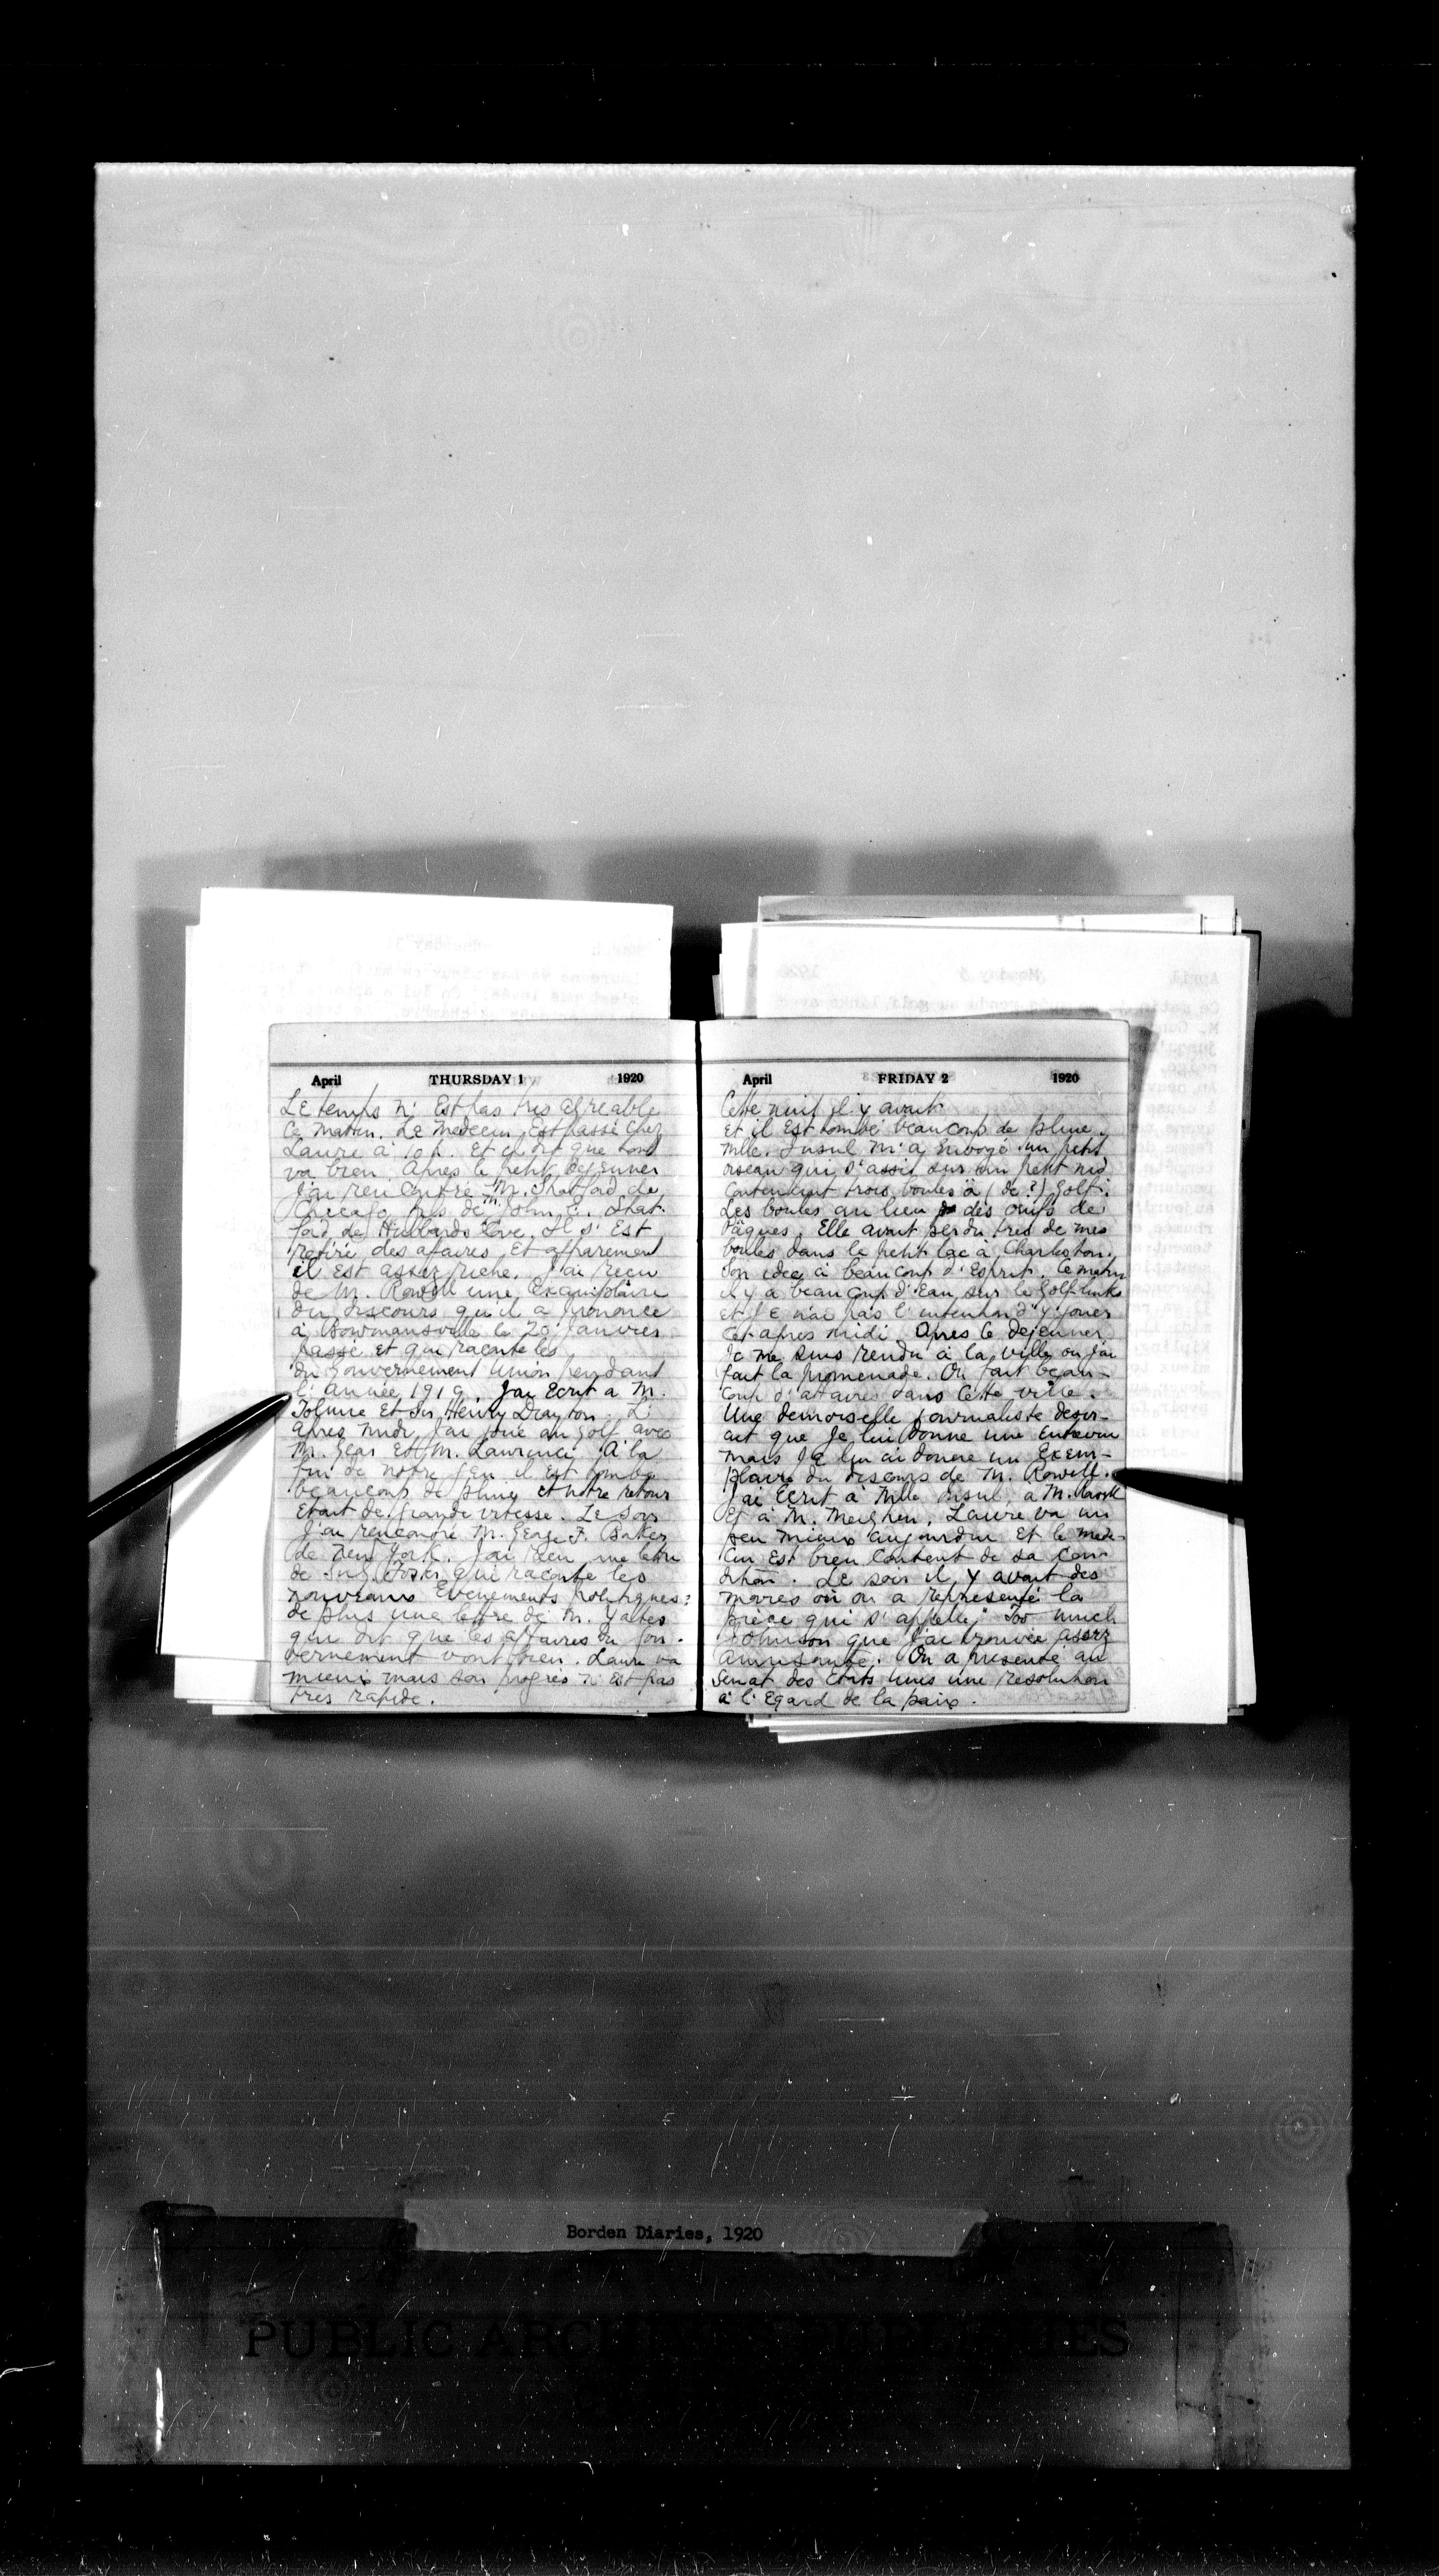 April THURSDAY 1 1920
Le temps n'est pas tres agreable
ce matin. Le medecin est passé chez
Laure à 10 h. et dit que tout
va bien. Apres le petit dejeuner
J'ai rencontré M. Shatford de
Chicago fils de M. John E. Shat-
ford de Hubbards Cove. Il s'est
retiré des afaires et apparement
il est assez riche. J'ai reçu
de M. Rowell une exemplaire
du discours qu'il a prononcé
à Bowmansville le 20 Janvier
passé et qui raconte les
du Gouvernement Union pendant
l'année 1919. J'ai ecrit a M.
Tolmie et Sir Henry Drayton. L'
apres midi j'ai joué au golf avec
M. Gear et M. Lawrence. A la
fin de notre jeu il est tombé
beaucoup de pluie et notre retour
etait de grande vitesse. Le soir
J'ai rencontré M. George F. Baker
de New York. J'ai reçu une lettre
de Foster qui raconte les
nouveaux evenements politiques:
de plus une lettre de M. Yates
qui dit que les affaires du Gou-
vernement vont bien. Laure va
mieux mais son progrès n'est pas
tres rapide.
April FRIDAY 2 1920
Cette nuit il y avait
et il est tombé beaucoup de pluie.
Mlle. Insul m'a envoyé un petit
oiseau qui s'assit sur un petit nid
contenant trois boules à (de?) Golf.
Les boules au lieu des oeufs de
Pâques. Elle avait perdu tres de mes
boules dans le petit lac à Charleston.
Son idée a beaucoup d'esprit. Ce matin
il y a beaucoup d'eau sur le Golf links
et je n'ai pas l'intention d'y jouer
cet apres midi. Apres le dejeuner
Je me suis rendu à la ville où j'ai
fait la promenade. On fait beau-
coup d'afaires dans cette ville.
Une demoiselle journaliste desir-
ait que Je lui donne une entrevue
mais Je lui ai donné un exem-
plaire du discours de M. Rowell.
J'ai ecrit à Mlle Insul, a M.
et à M. Meighen. Laure va un
peu mieux aujourdhui et le mede-
cin est bien content de sa con-
dition. Le soir il y avait des
movies où on a representé la
pièce qui s'appelle "Too much
Johnson que j'ai trouvée assez
amusante. On a presenté au
Senat des Etats Unis une resolution
à l'egard de la paix.
Borden Diaries, 1920
PUBLIC ARCHIVES PUBLIQUES